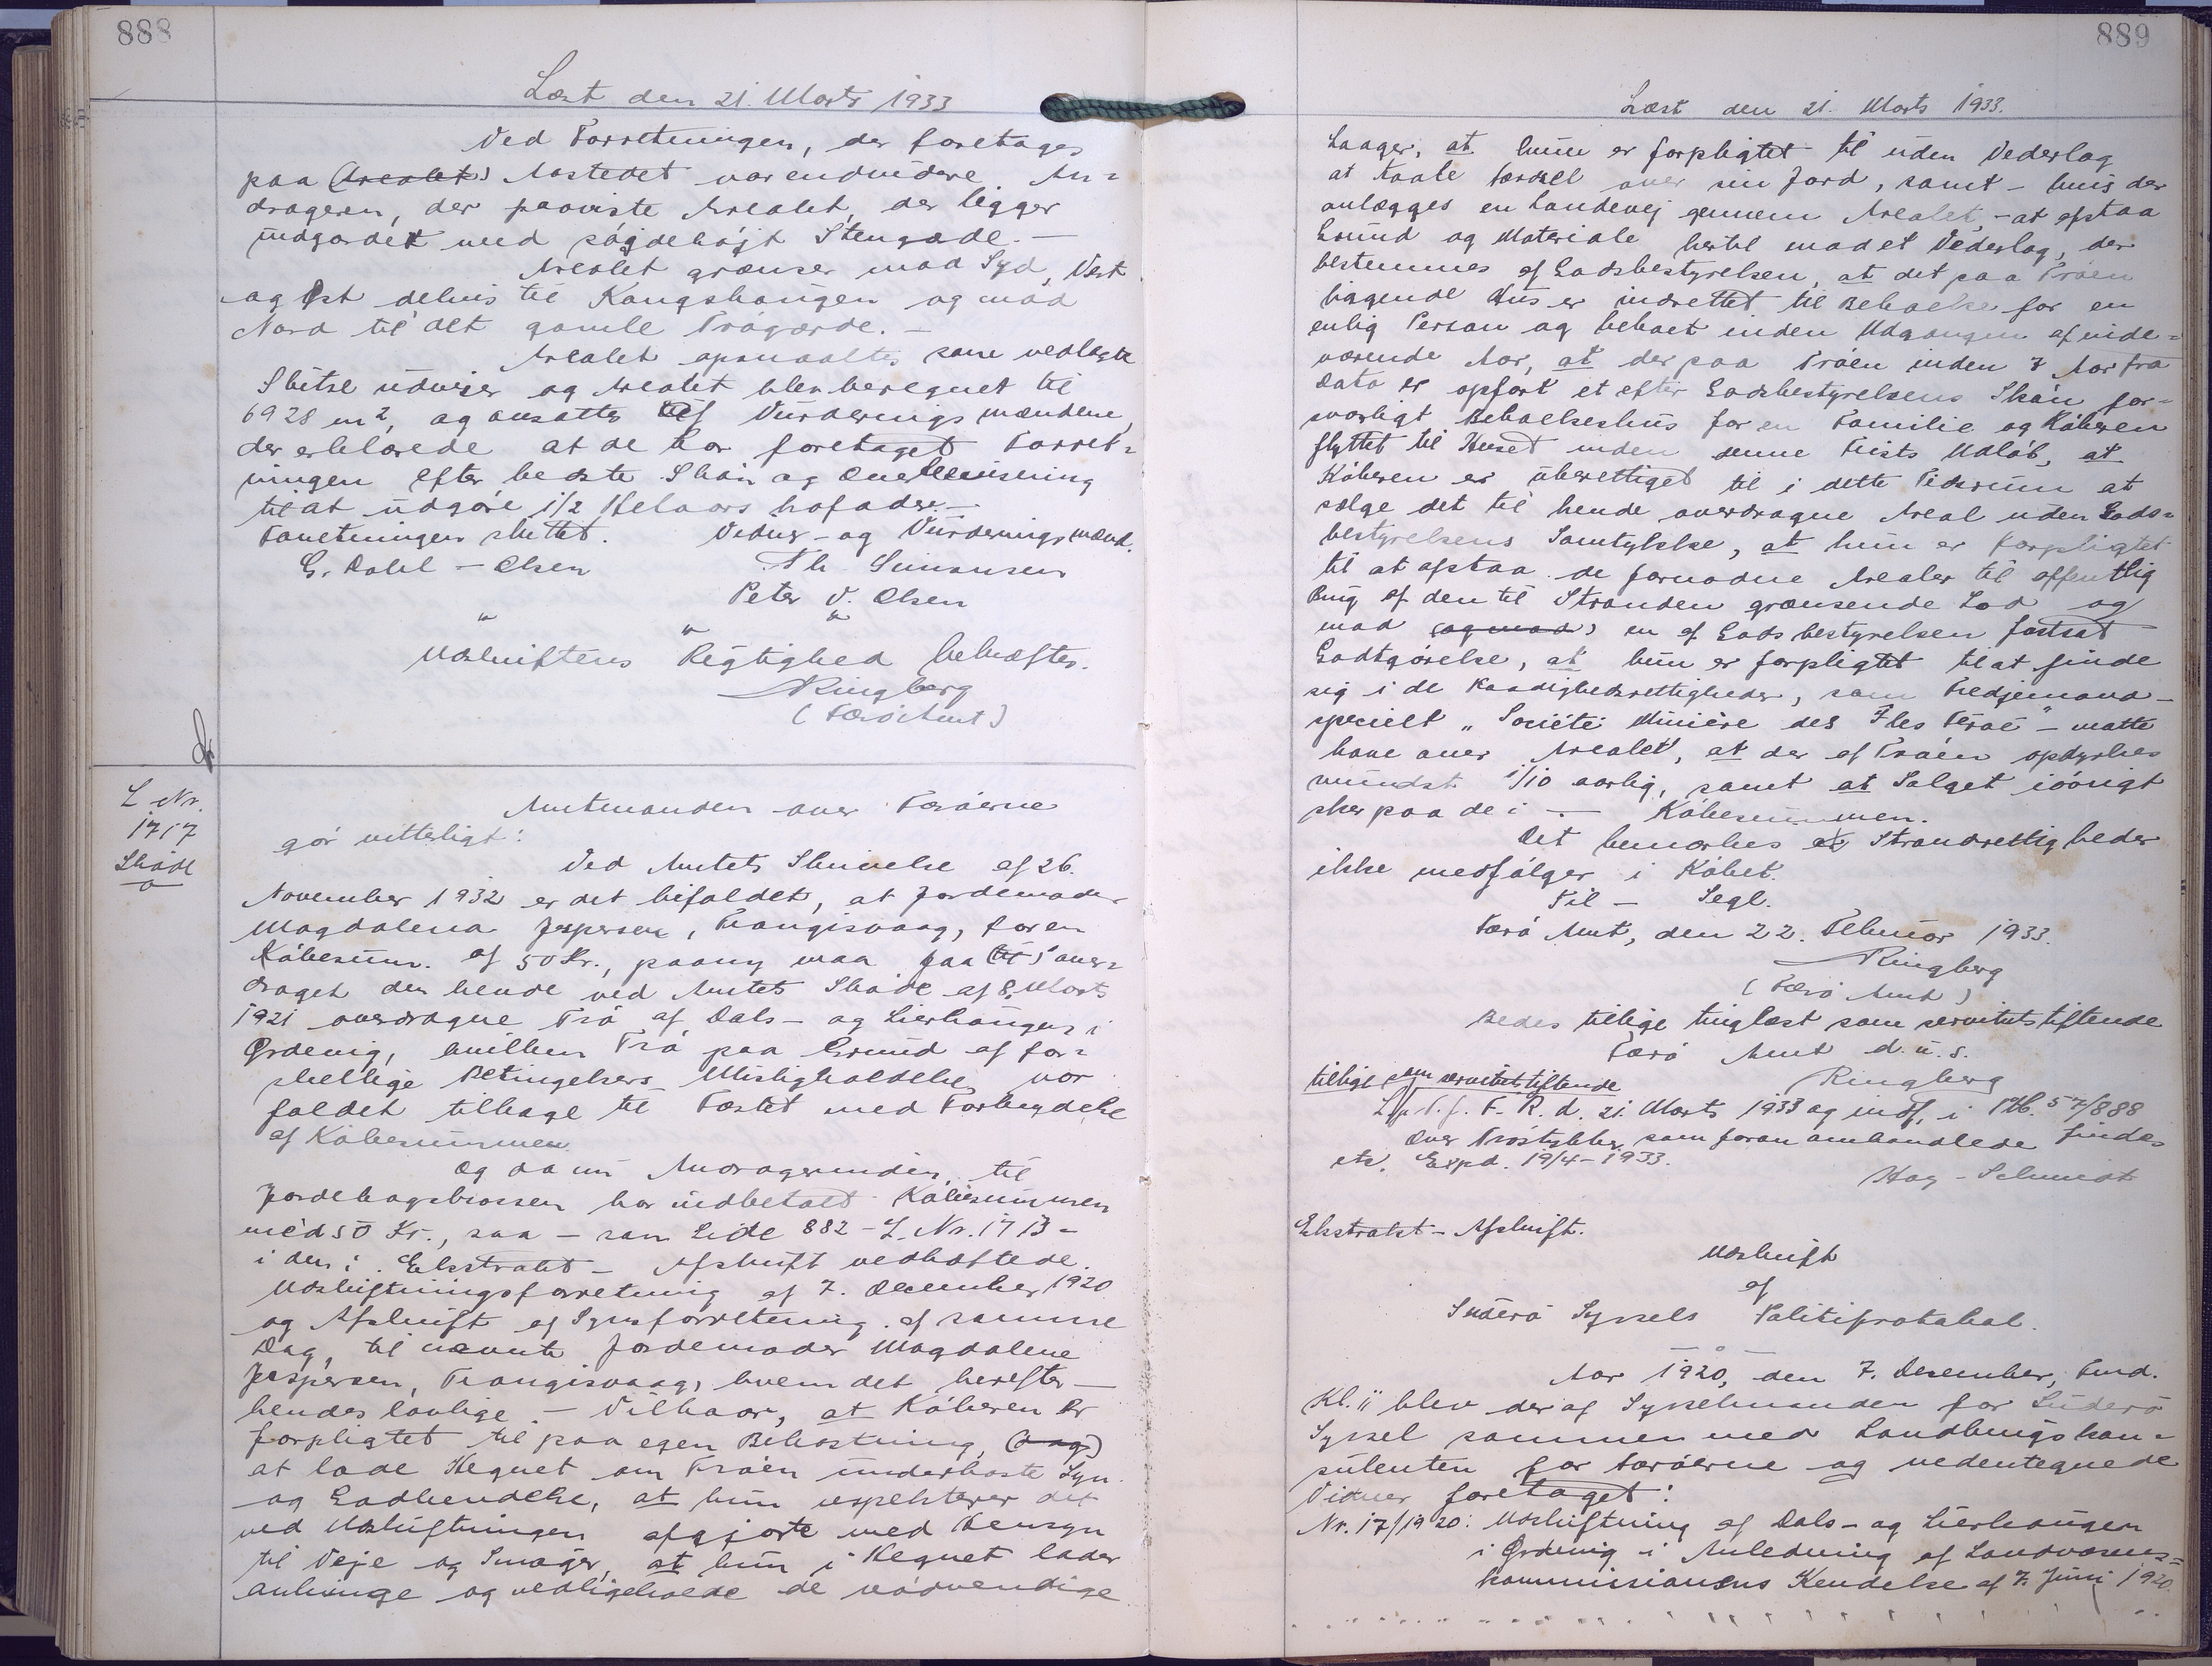 888
Læst den 21. Marts 1933
Ved Forretningen, der foretages
paa (Arealet) Aastedet var endvidere An-
drageren, der paaviste Arealet, der ligger
indgærdet med Stengærde.—
Arealet grænser mod Syd, Vest
og Øst delvis til Kongshaugen og mod
Nord til det gamle Trøgærde.—
Arealet opmaaltes som vedlagte
Skitse udviser og Arealet blev beregnet til
6928 m2, og ansattes af Vurderingsmændene,
der erklærede at de har foretaget Forret-
ningen efter bedste Skøn og Overbevisning
til at udgøre 1/2 Helaars hofoder.—
Forretningen sluttet. Vidner- og Vurderingsmænd.
E. Dahl-Olsen Th. Simonsen
Peter V. Olsen
" " "
Udskriftens Rigtighed bekræftes.
Ringberg
(Færø Amt)
L Nr.
1717
Skøde
Amtmanden over Færøerne
gør vitterligt:
Ved Amtets Skrivelse af 26.
November 1932 er det bifaldet, at Jordemoder
Magdalena Jespersen, Trangisvaag, for en
Købesum af 50 Kr., paany maa faa (til) over-
draget den hende ved Amtets Skøde af 8. Marts
1921 overdragne Trø af Dals- og Lierhaugen i
Ørdevig, hvilken Trø paa Grund af for-
skellige Betingelsers Misligholdelse var
faldet tilbage til Fæstet med Fortabelse
af Købesummen.
Og da nu Andragerinden til
Jordebogskassen har indbetalt Købesummen
med 50 Kr., saa — som Side 882 - L. Nr. 1713 -
i den i Ekstrakt- Afskrift vedhæftede
Udskiftningsforretning af 7. December 1920
og Afskrift af Synsforretning af samme
Dag, til nævnte Jordemoder Magdalene
Jespersen, Trangisvaag, hvem det herefter —
hendes lovlige — Vilkaar, at Køberen er
forpligtet til paa egen Bekostning, (          )
at lade Hegnet om Trøen underkaste Syn
og Godkendelse, at hun respekterer det
ved Udskiftningen afgjorte med Hensyn
til Veje og Smøger, at hun i Hegnet lader
anbringe og vedligeholde de nødvendige
889
Læst den 21. Marts 1933.
Laager, at hun er forpligtet til uden Vederlag
at taale Færdsel over sin Jord, samt — hvis der
anlægges en Landevej gennem Arealet, — at afstaa
Grund og Materiale hertil mod et Vederlag, der
bestemmes af Godsbestyrelsen, at det paa Trøen
liggende Hus er indrettet til Beboelse for en
enlig Person og beboet inden Udgangen af inde-
værende Aar, at der paa Trøen inden 7 Aar fra
Dato er opført et efter Godsbestyrelsens Skøn for-
svarligt Beboelseshus for en Familie og Køberen
flyttet til Huset inden denne Frists Udløb, at
Køberen er uberettiget til i dette Tidsrum at
sælge det til hende overdragne Areal uden Gods-
bestyrelsens Samtykke, at hun er forpligtet
til at afstaa de fornødne Arealer til offentlig
Brug af den til Stranden grænsende Lod og
mod (og mod) en af Godsbestyrelsen fastsat
Godtgørelse, at hun er forpligtet til at finde
sig i de Raadighedsrettigheder, som Tredjemand —
specielt „Société Minière des Iles Féroé" — maatte
have over Arealet, at der af Trøen opdyrkes
mindst 1/10 aarlig, samt at Salget iøvrigt
sker paa de i — Købesummen.
Det bemærkes at Strandrettigheder
ikke medfølger i Købet.
Til — Segl.
Færø Amt, den 22. Februar 1933.
Ringberg
(Færø Amt)
Bedes tillige tinglæst som servitutstiftende
Færø Amt d. u. s.
Ringberg
tillige som servitutstiftende
L. p. T. f. F. R. d. 21. Marts 1933 og indf. i Ptb. 57/888
Over Trøstykker som foran omhandlede findes
etc. Expd. 19/4-1933.
Høg-Schmidt
Ekstrakt- Afskrift.
Udskrift
af
Suderø Syssels Politiprotokol.
Aar 1920, den 7. December, Fmd.
Kl. 11 blev der af Sysselmanden for Suderø
Syssel sammen med Landbrugskon-
sulenten for Færøerne og nedentegnede
Vidner foretaget:
Nr. 17/1920: Udskiftning af Dals- og Lierhaugen
i Ørdevig i Anledning af Landvæsens-
kommissionens Kendelse af 7. Juni 1920.